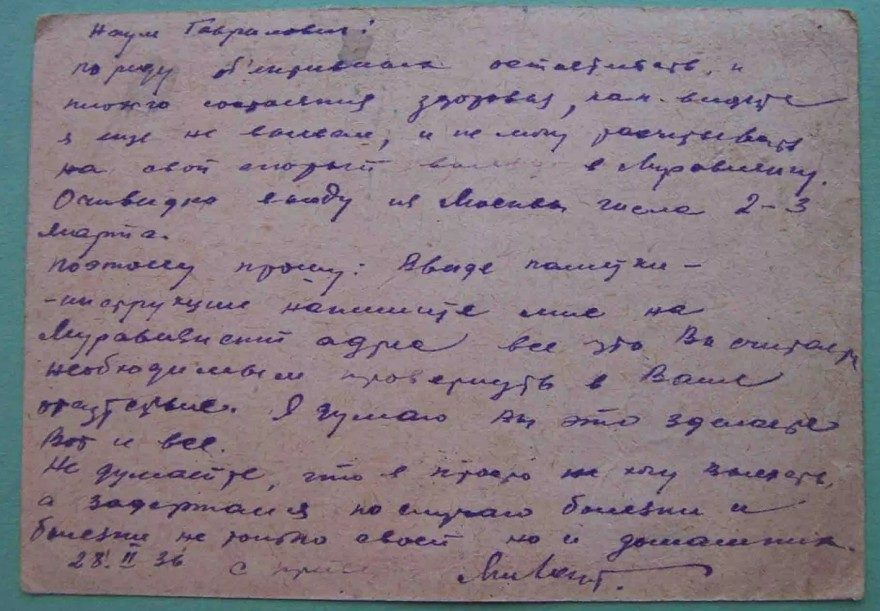 Наум Гаврилович!
по ряду об'ективных обстоятельств, и
плохого состояния здоровья, как видите
я еще не выехал, и не могу расчитывать
на свой скорый в Муравишину.
Очевидно выеду из Москвы числа 2-3
марта.
Поэтому прошу: В виде памятки-
-инструкции напишите мне на
адрес все что Вы считаете
необходимым провернуть в Ваше
отсутствие. Я думаю Вы это зделаете
Вот и все.
Не думайте, что я просто не хочу выехать,
а задержался по случаю болезни и
болезни не только своей но и домашних.
28.II 36 с